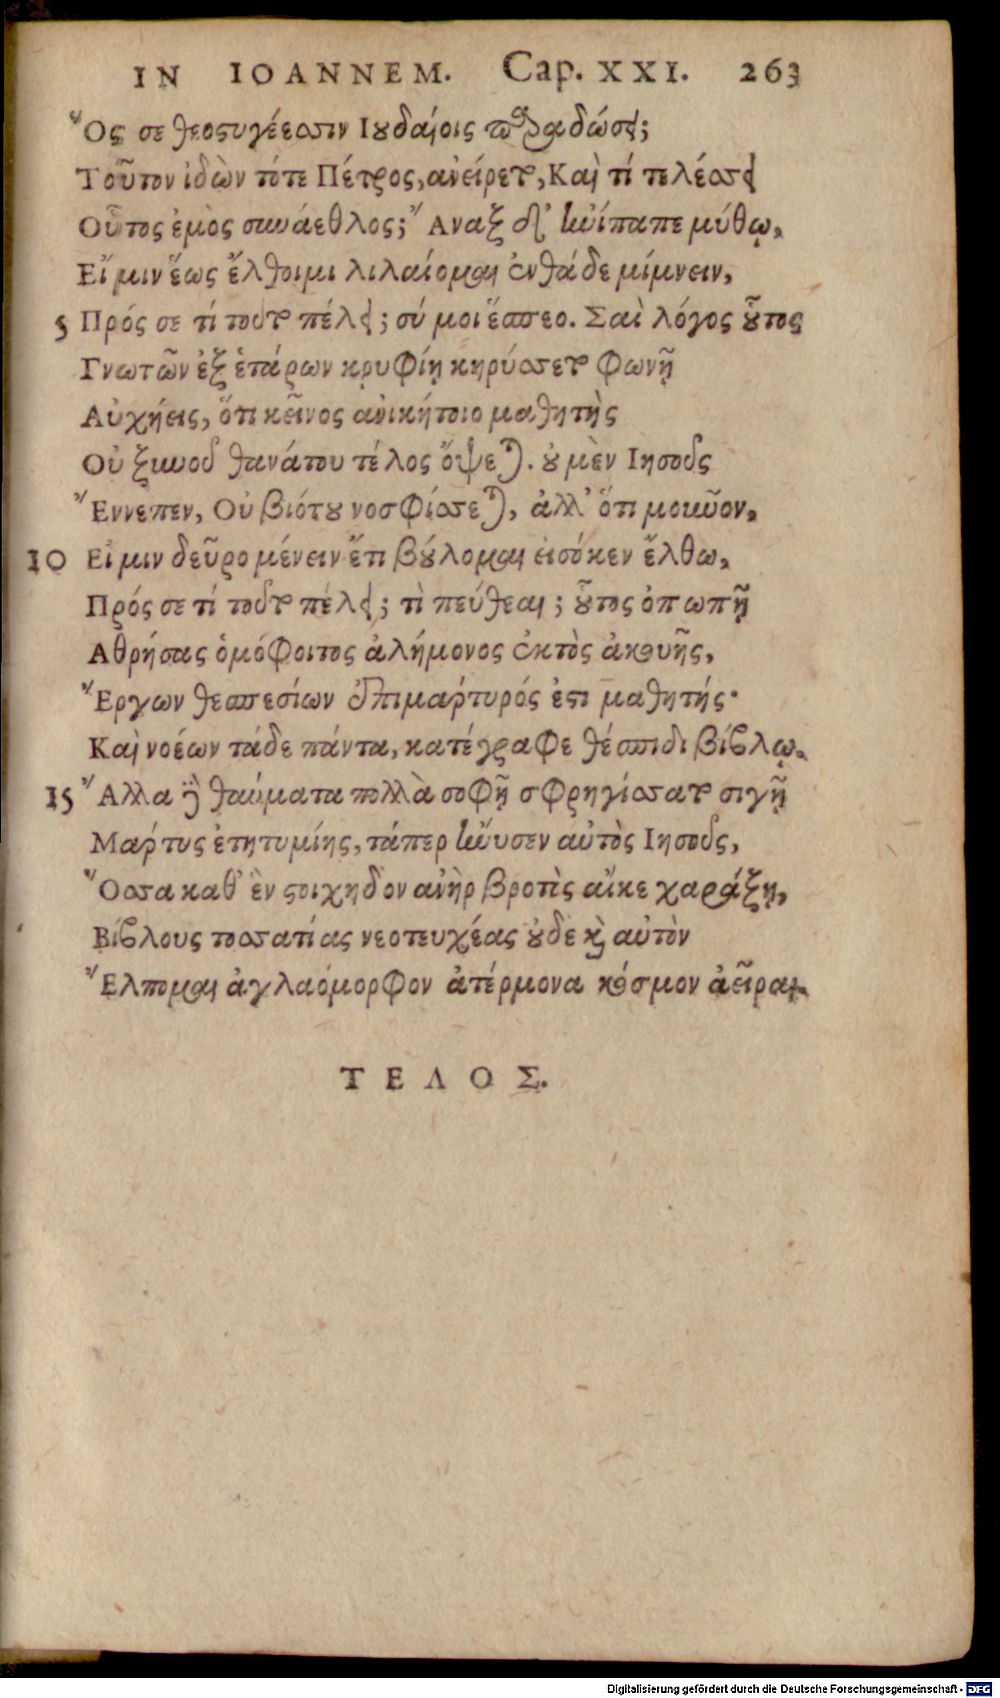 IN IOANNEM. Cap. XXI. 263
Ὅς σε θεοστυγέεσσιν Ιουδαίοις παραδώσει;
Τοῦτον ἰδὼν τότε Πέτρος, ἀνείρετο, Καὶ τί τελέσσει
Οὗτος ἐμὸς συνάεθλος; Ἄναξ δ' ἠνίπαπε μύθῳ,
Εἴ μιν ἕως ἔλθοιμι λιλαίομαι ἐνθάδε μίμνειν,
5 Πρός σε τί τοῦτο πέλει; σύ μοι ἕσπεο. Σαὶ λόγος οὗτος
Γνωτῶν ἐξ ἑτάρων κρυφίῃ κηρύσσετο φωνῇ
Αὐχήεις, ὅτι κεῖνος ἀνικήτοιο μαθητὴς
Οὐ ξυνοῦ θανάτου τέλος ὄψεται. οὐ μὲν Ιησοῦς
Ἔννεπεν, Οὐ βιότου νοσφίσσεται, ἀλλ' ὅτι μοῦνον,
10 Εἴ μιν δεῦρο μένειν ἔτι βούλομαι εἰσόκεν ἔλθω,
Πρός σε τί τοῦτο πέλει; τὶ πεύθεαι; οὗτος ὀπωπῇ
Αθρήσας ὁμόφοιτος ἀλήμονος ἐκτὸς ἀκουῆς,
Ἔργων θεσπεσίων ἐπιμάρτυρός ἐστι μαθητής·
Καὶ νοέων τάδε πάντα, κατέγραφε θέσπιδι βίβλῳ.
15 Ἄλλα δὲ θαύματα πολλὰ σοφῇ σφρηγίσσατο σιγῇ
Μάρτυς ἐτητυμίης, τάπερ ἤνυσεν αὐτὸς Ιησοῦς,
Ὅσσα καθ' ἓν στοιχηδὸν ἀνὴρ βροτὸς αἴκε χαράξῃ,
Βίβλους τοσσατίας νεοτευχέας οὐδὲ καὶ αὐτὸν
Ἔλπομαι ἀγλαόμορφον ἀτέρμονα κόσμον ἀεῖραι.
ΤΕΛΟΣ.
Digitalisierung gefördert durch die Deutsche Forschungsgemeinschaft - DFG